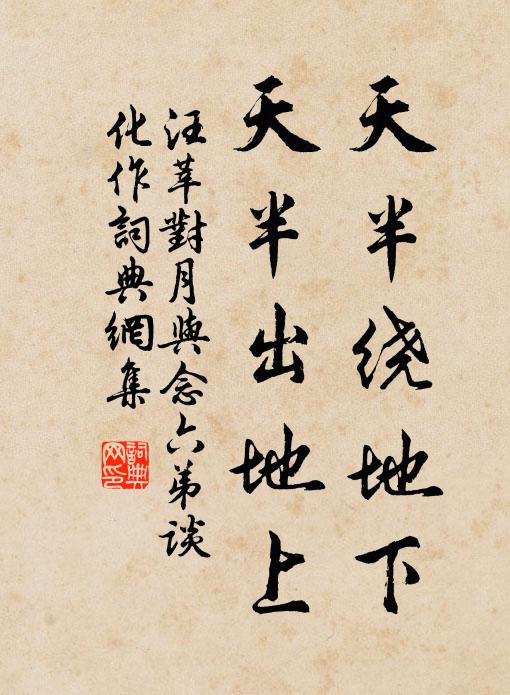 天半绕地下
天半出地上
汪莘對月與念六弟談
化作詞典網集
詞典
网印